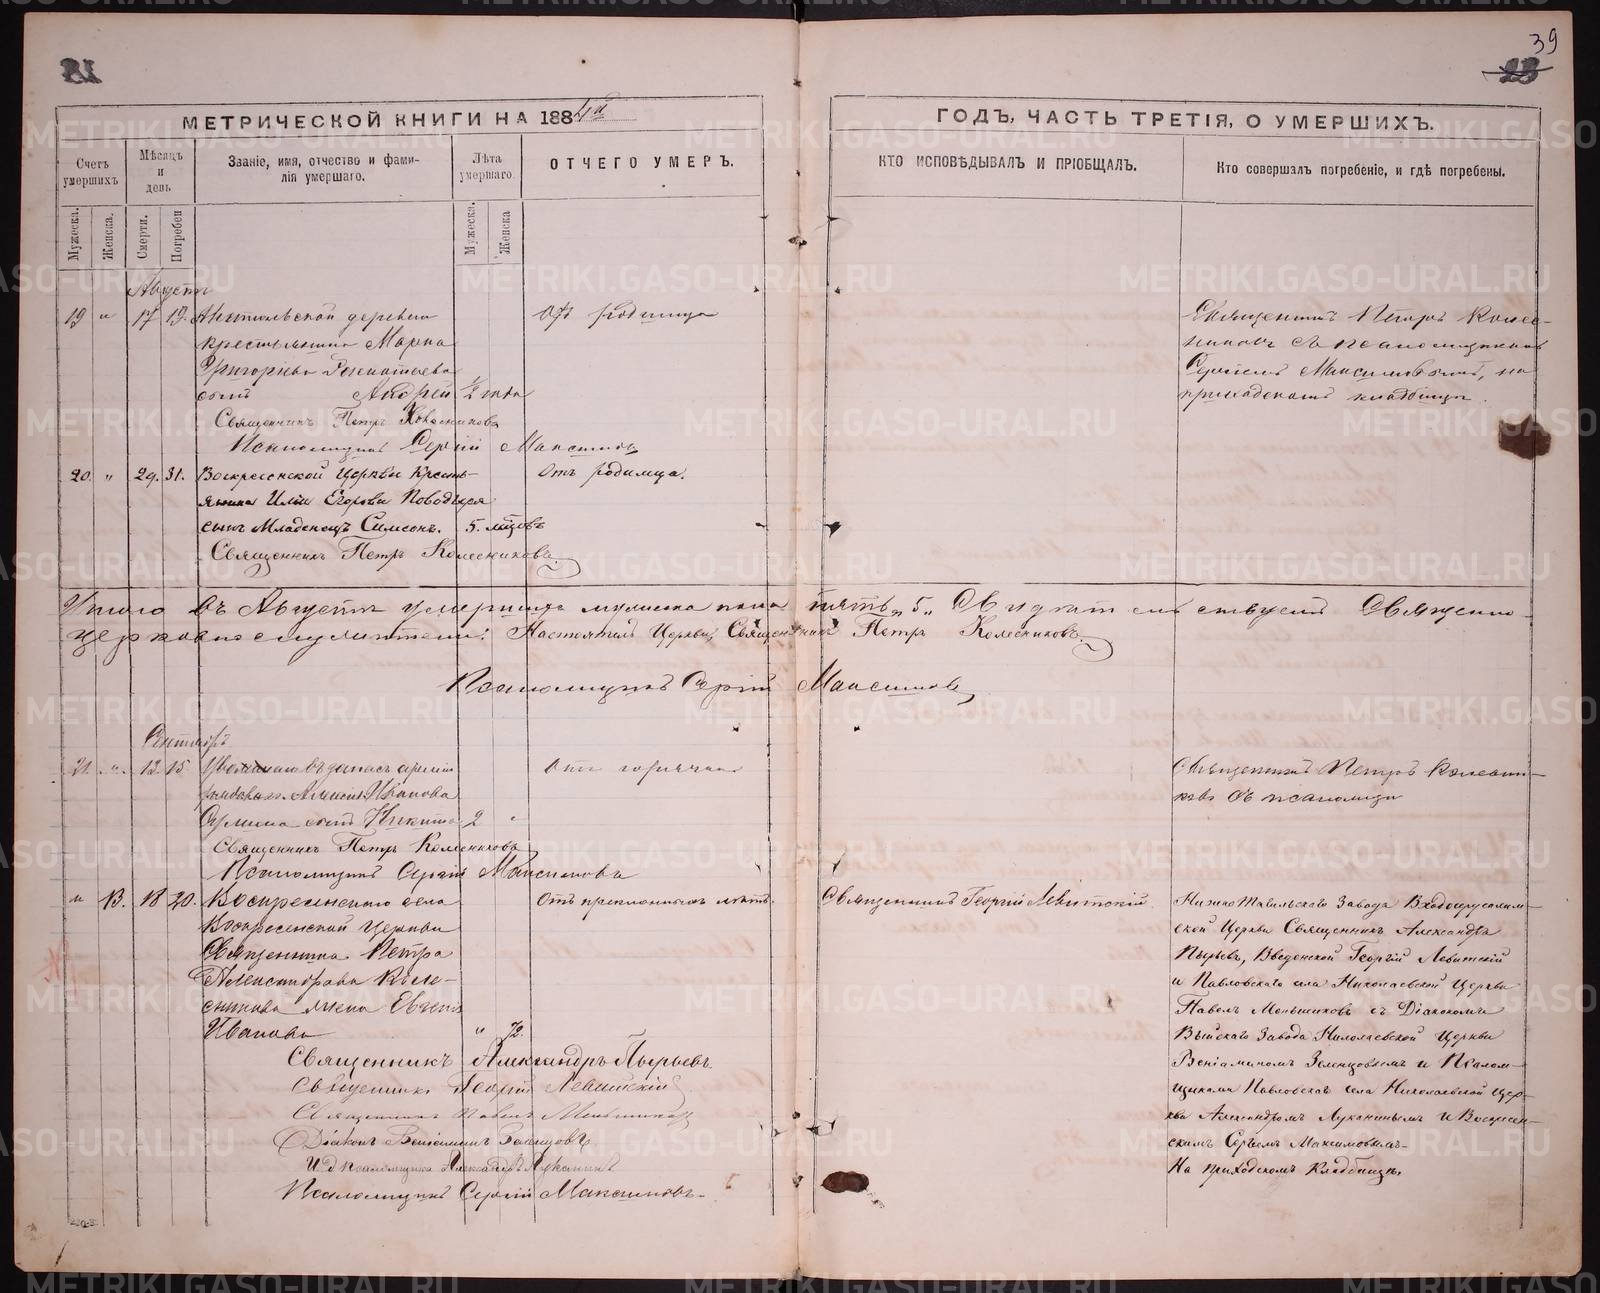 39
МЕТРИЧЕСКОЙ КНИГИ НА 1884й
ГОДЪ, ЧАСТЬ ТРЕТІЯ, О УМЕРШИХЪ.
Счетъ умершихъ
Мѣсяцъ и день
Званіе, имя, отчество и фами-
лія умершаго.
Лѣта умершаго.
ОТЧЕГО УМЕРЪ.
КТО ИСПОВѢДЫВАЛЪ И ПРІОБЩАЛЪ.
Кто совершалъ погребеніе, и гдѣ погребены.
Мужеска.
Женска.
Смерти.
Погребен
Мужеска.
Женска
Августъ
19 " 17 19. деревни
крестьянина Марка
Григорьева
сынъ Андрей 1/2 года
Отъ родимца
Священникъ Петръ Колес-
никовъ съ псаломщикомъ
Сергіемъ Максимовымъ, на
приходскомъ кладбищѣ.
Священникъ Петръ Колесниковъ
Псаломщикъ Сергій Максимовъ
20. " 29. 31. Воскресенской Церкви Кресть-
янина Иліи Егорова
сынъ Младенецъ Симеонъ. 5. мѣсяцовъ
Отъ родимца.
Священникъ Петръ Колесниковъ
Итого въ Августѣ умершихъ мужеска пола пять "5" Свидѣтельствуемъ Священно-
церковнослужители: Настоятель Церкви, Священникъ Петръ Колесниковъ.
Псаломщикъ Сергій Максимовъ
Сентябрь
21. " 13 15 въ запасъ арміи
рядоваго Алексія Иванова
сынъ Никита 2 "
Отъ горячки
Священникъ Петръ Колесни-
ковъ съ псаломщи
Священникъ Петръ Колесниковъ
Псаломщикъ Сергій Максимовъ
" 13. 18 20. Воскресенскаго села
Воскресенской церкви
Священника Петра
Александрова Коле-
сникова жена Евгенія
Иванова " 72.
Отъ преклонныхъ лѣтъ.
Священникъ Георгій Левитскій
Нижне Тагильскаго Завода Входоіерусалим-
ской Церкви Священникъ Александръ
Пырьевъ, Введенской Георгій Левитскій
и Павловскаго села Николаевской Церкви
Павелъ Меньшиковъ съ Діакономъ
Выйскаго Завода Николаевской Церкви
Веніаминомъ Земляновымъ и Псалом-
щиками Павловскаго села Николаевской Цер-
кви Александромъ Луканинымъ и Воскресен-
скимъ Сергіемъ Максимовымъ
На приходскомъ Кладбищѣ.
Священникъ Александръ Пырьевъ.
Священникъ Георгій Левитскій
Священникъ Павелъ Меньшиковъ
Діаконъ Веніаминъ
И. д. псаломщика Александръ Луканинъ
Псаломщикъ Сергій Максимовъ.
METRIKI.GASO-URAL.RU